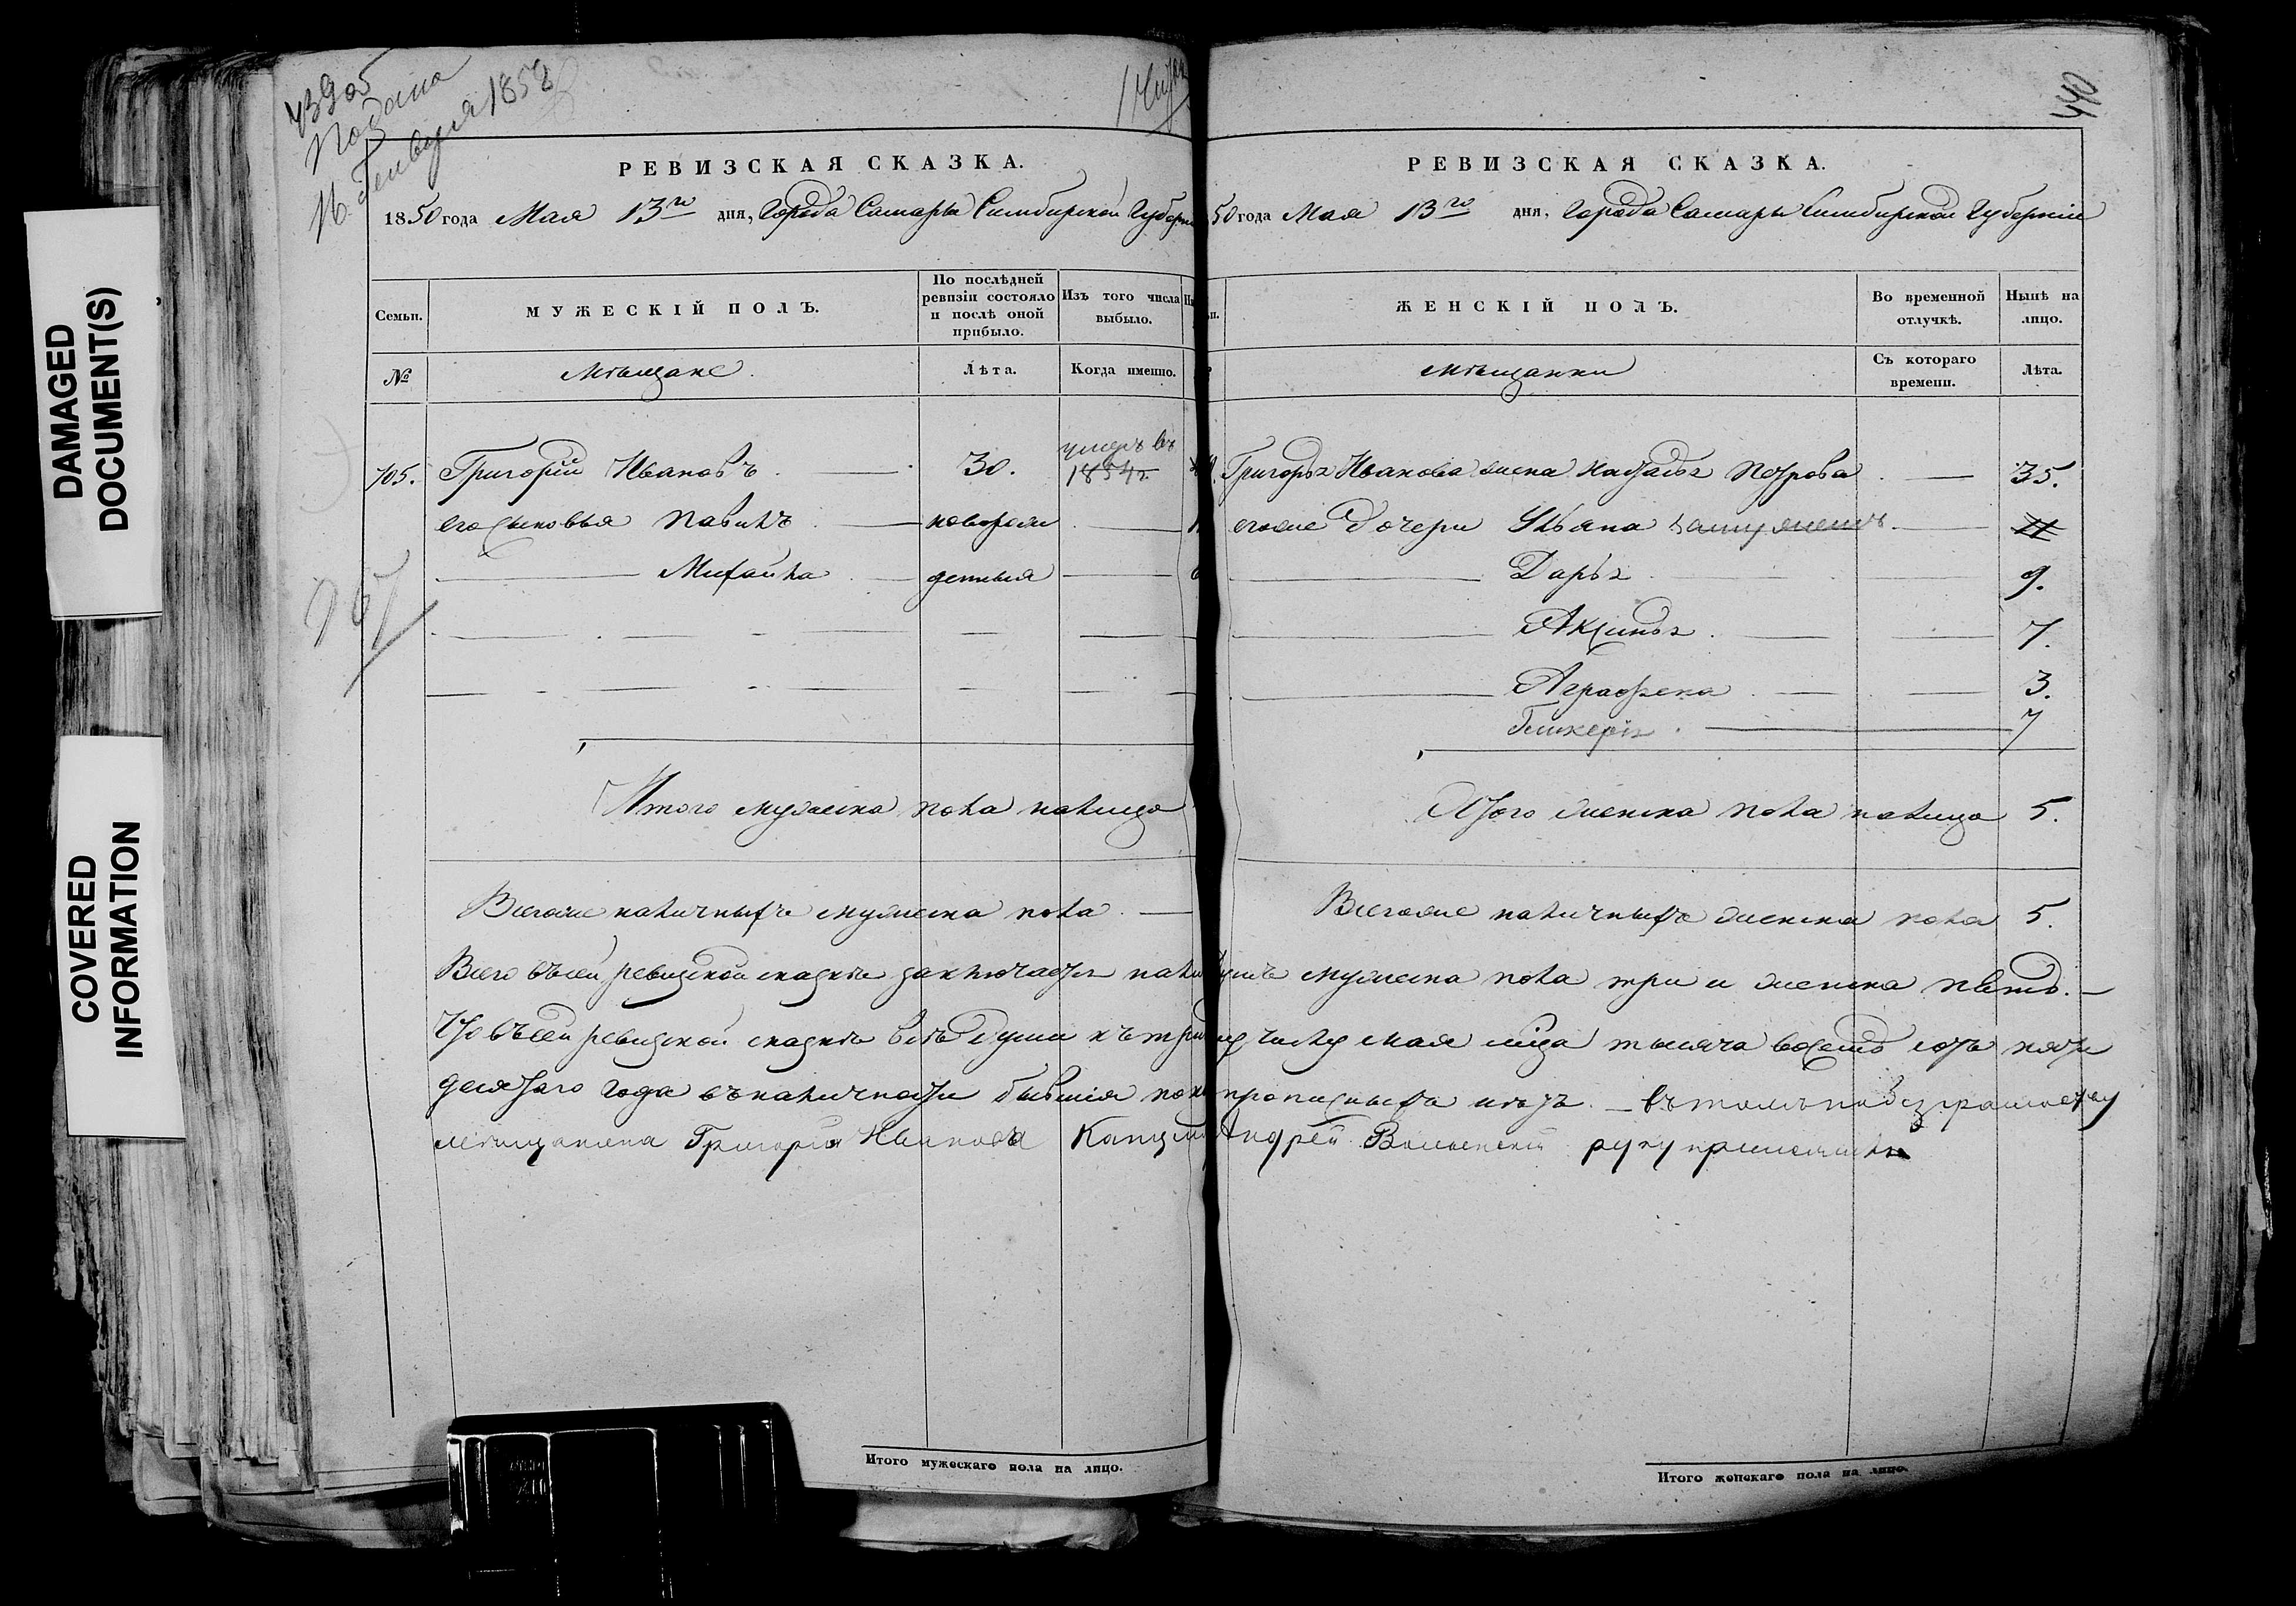 DAMAGED
DOCUMENT(S)
COVERED
INFORMATION
439 об
Подана
16 Генваря 1858
РЕВИЗСКАЯ СКАЗКА.
1850 года Мая 13го дня, Города Самары Симбирской Губерн
Семьи. МУЖЕСКІЙ ПОЛЪ. По послѣдней ревизіи состояло и послѣ оной прибыло. Изъ того числа выбыло.
№ мѣщане. Лѣта. Когда именно.
705. Григорій Ивановъ 30. умеръ въ 1854 г.
его сыновья Павилъ новорож
Михайла денныя
Итого мужеска пола налицо
Всегоже наличныхъ мужеска пола
440
РЕВИЗСКАЯ СКАЗКА.
50 года Мая 13го дня, Города Самары Симбирской Губерніи
ЖЕНСКІЙ ПОЛЪ. Во временной отлучкѣ. Нынѣ на лицо.
мѣщанки Съ котораго времени. Лѣта.
Григорья Иванова жена Надалья Петрова 35.
егоже дочери Ульяна замужемъ 11
Дарья 9.
Аксинья 7.
Аграфена 3.
Гликерія 7
Итого женска пола налицо 5.
Всегоже наличныхъ женска пола 5.
Всего въсей ревизской сказкѣ заключается нали душъ мужеска пола три и женска пять.
Что въсей ревизской сказкѣ всѣ души къ числу мая мѣца тысяча восемь сотъ пяти
десятаго года въналичности бывшія прописныхъ нѣтъ. въ томъ по безграмотству
мѣщанина Григорія Иванова Андрей руку приложилъ
Итого мужескаго пола на лицо.
Итого женскаго пола на лицо.